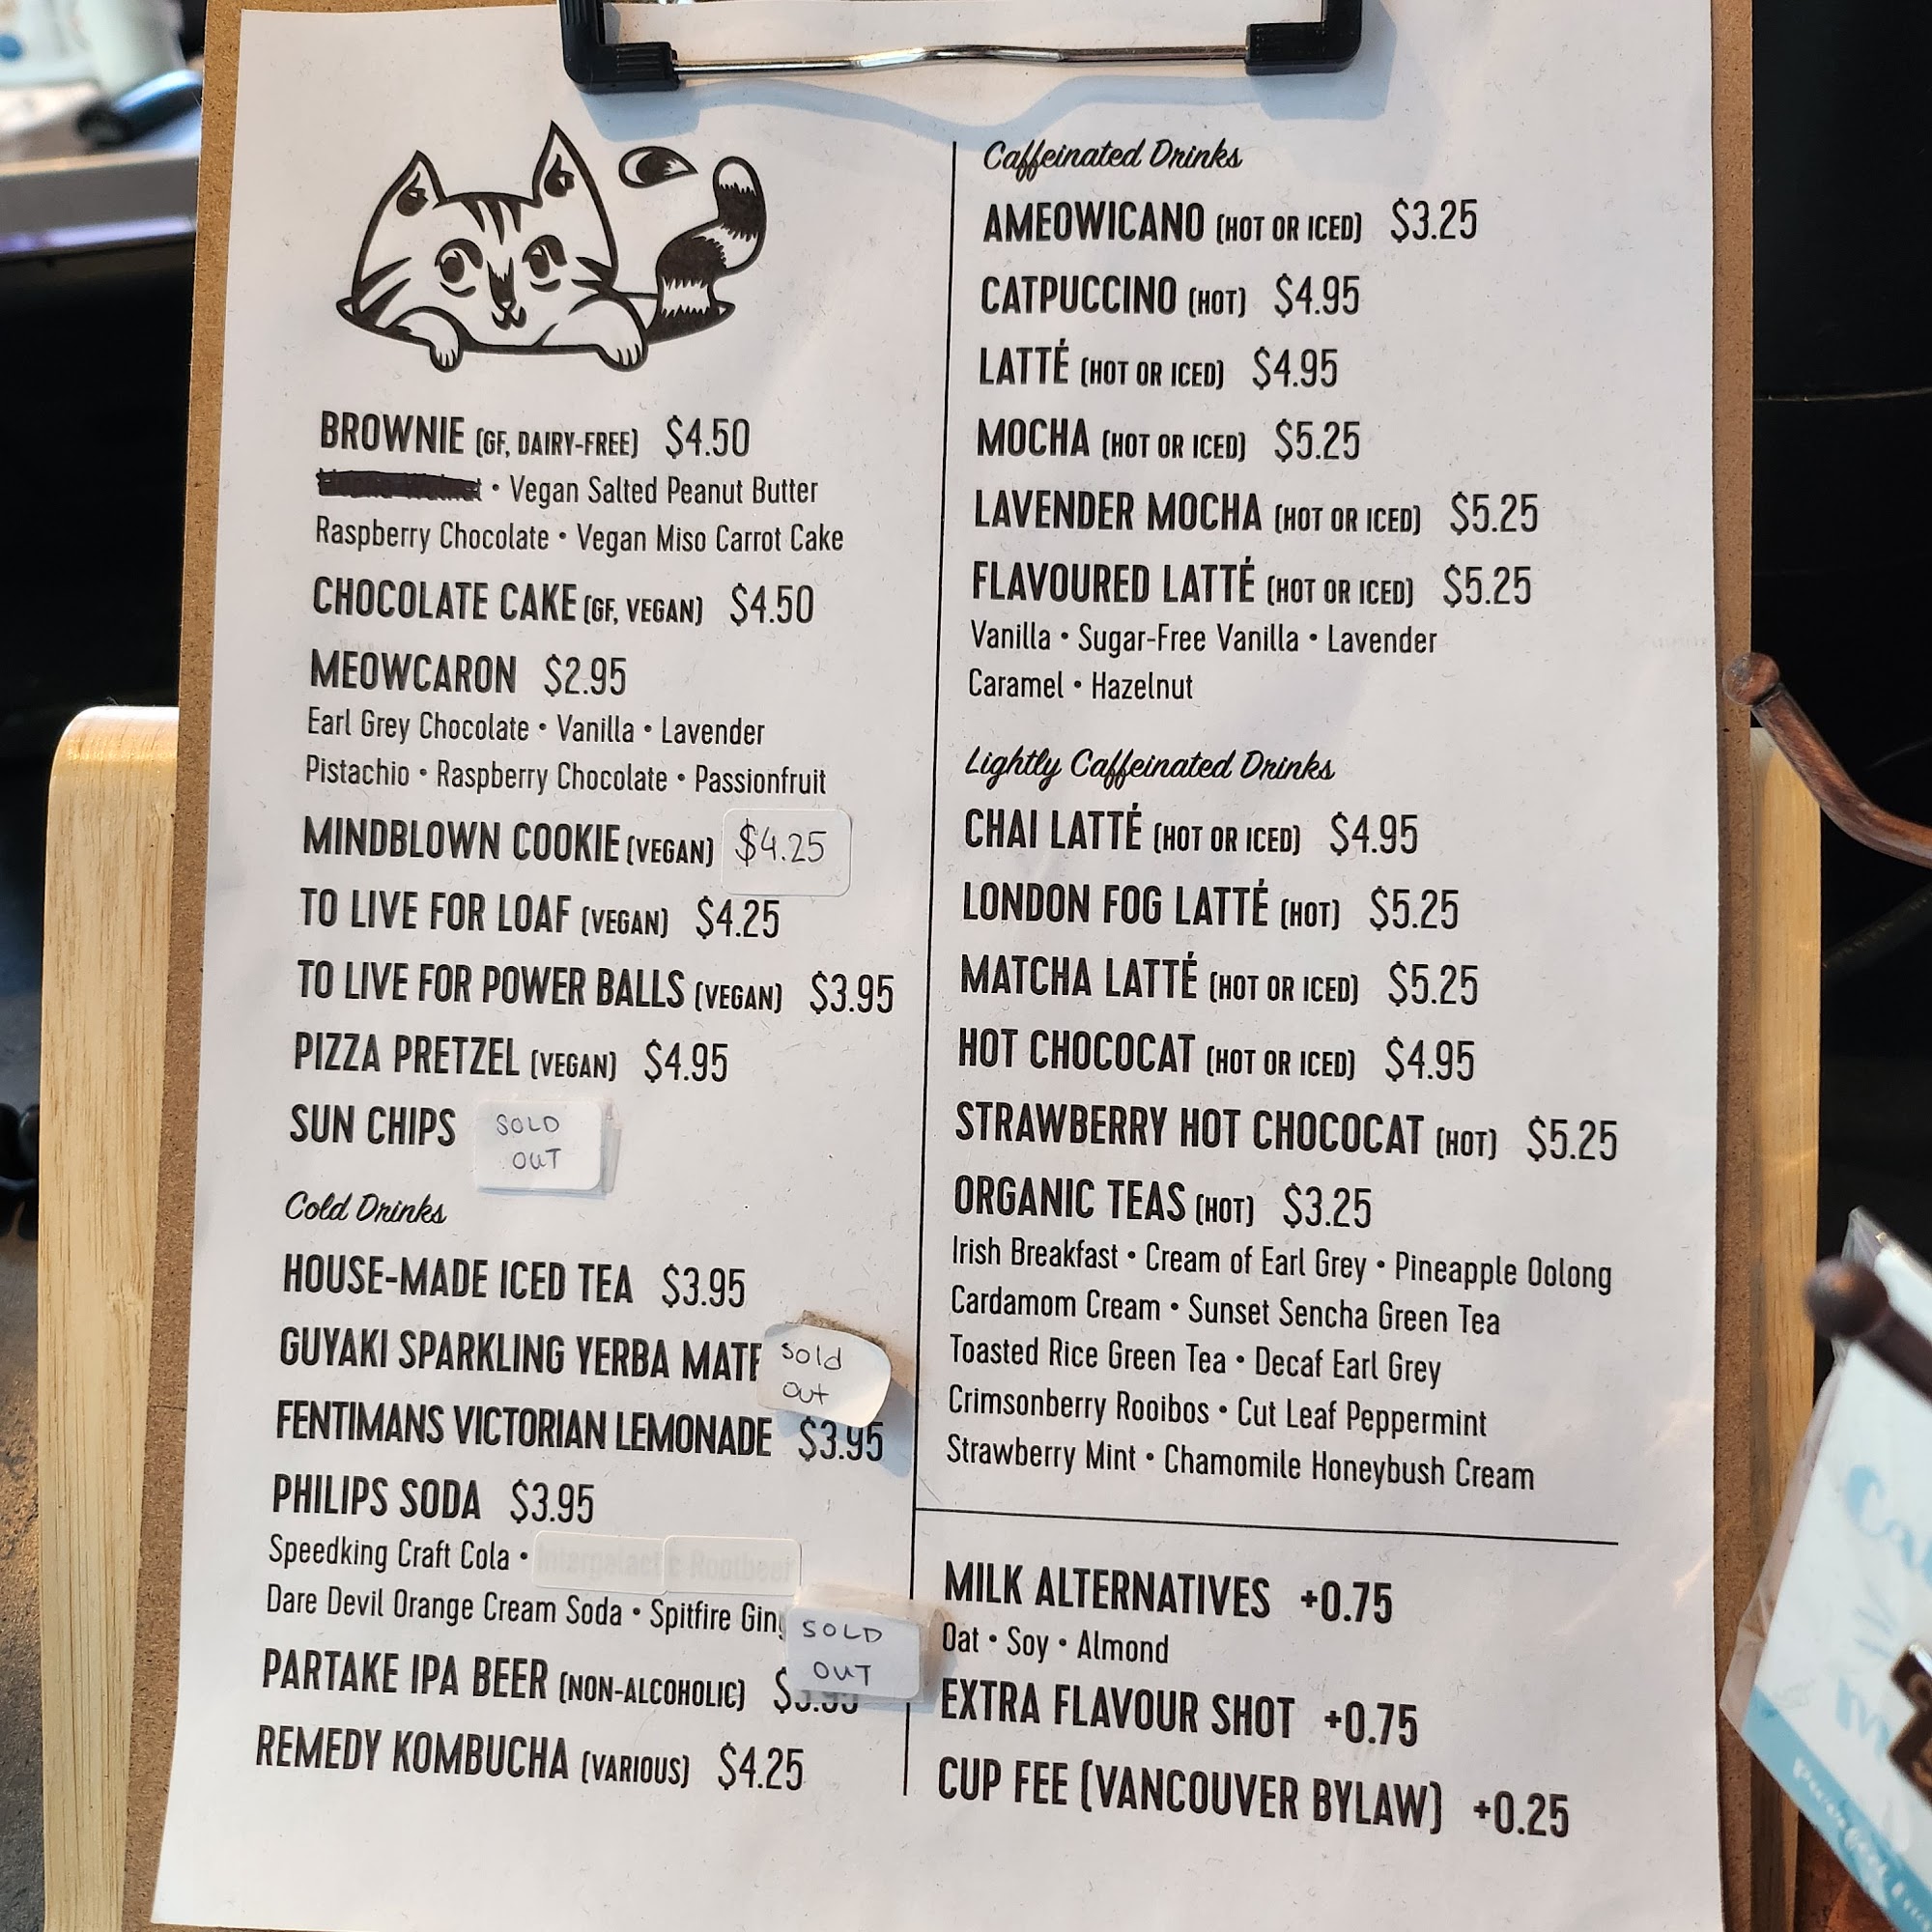 BROWNIE (GF, DAIRY-FREE) $4.50
• Vegan Salted Peanut Butter
Raspberry Chocolate • Vegan Miso Carrot Cake
CHOCOLATE CAKE (GF, VEGAN) $4.50
MEOWCARON $2.95
Earl Grey Chocolate • Vanilla • Lavender
Pistachio • Raspberry Chocolate • Passionfruit
MINDBLOWN COOKIE (VEGAN) $4.25
TO LIVE FOR LOAF (VEGAN) $4.25
TO LIVE FOR POWER BALLS (VEGAN) $3.95
PIZZA PRETZEL (VEGAN) $4.95
SUN CHIPS SOLD
OUT
Cold Drinks
HOUSE-MADE ICED TEA $3.95
GUYAKI SPARKLING YERBA MATE sold
out
FENTIMANS VICTORIAN LEMONADE $3.95
PHILIPS SODA $3.95
Speedking Craft Cola • Intergalactic Rootbeer
Dare Devil Orange Cream Soda • Spitfire SOLD
OUT
PARTAKE IPA BEER (NON-ALCOHOLIC)
REMEDY KOMBUCHA (VARIOUS) $4.25
Caffeinated Drinks
AMEOWICANO (HOT OR ICED) $3.25
CATPUCCINO (HOT) $4.95
LATTÉ (HOT OR ICED) $4.95
MOCHA (HOT OR ICED) $5.25
LAVENDER MOCHA (HOT OR ICED) $5.25
FLAVOURED LATTÉ (HOT OR ICED) $5.25
Vanilla • Sugar-Free Vanilla • Lavender
Caramel • Hazelnut
Lightly Caffeinated Drinks
CHAI LATTÉ (HOT OR ICED) $4.95
LONDON FOG LATTÉ (HOT) $5.25
MATCHA LATTÉ (HOT OR ICED) $5.25
HOT CHOCOCAT (HOT OR ICED) $4.95
STRAWBERRY HOT CHOCOCAT (HOT) $5.25
ORGANIC TEAS (HOT) $3.25
Irish Breakfast • Cream of Earl Grey • Pineapple Oolong
Cardamom Cream • Sunset Sencha Green Tea
Toasted Rice Green Tea • Decaf Earl Grey
Crimsonberry Rooibos • Cut Leaf Peppermint
Strawberry Mint • Chamomile Honeybush Cream
MILK ALTERNATIVES +0.75
Oat • Soy • Almond
EXTRA FLAVOUR SHOT +0.75
CUP FEE (VANCOUVER BYLAW) +0.25